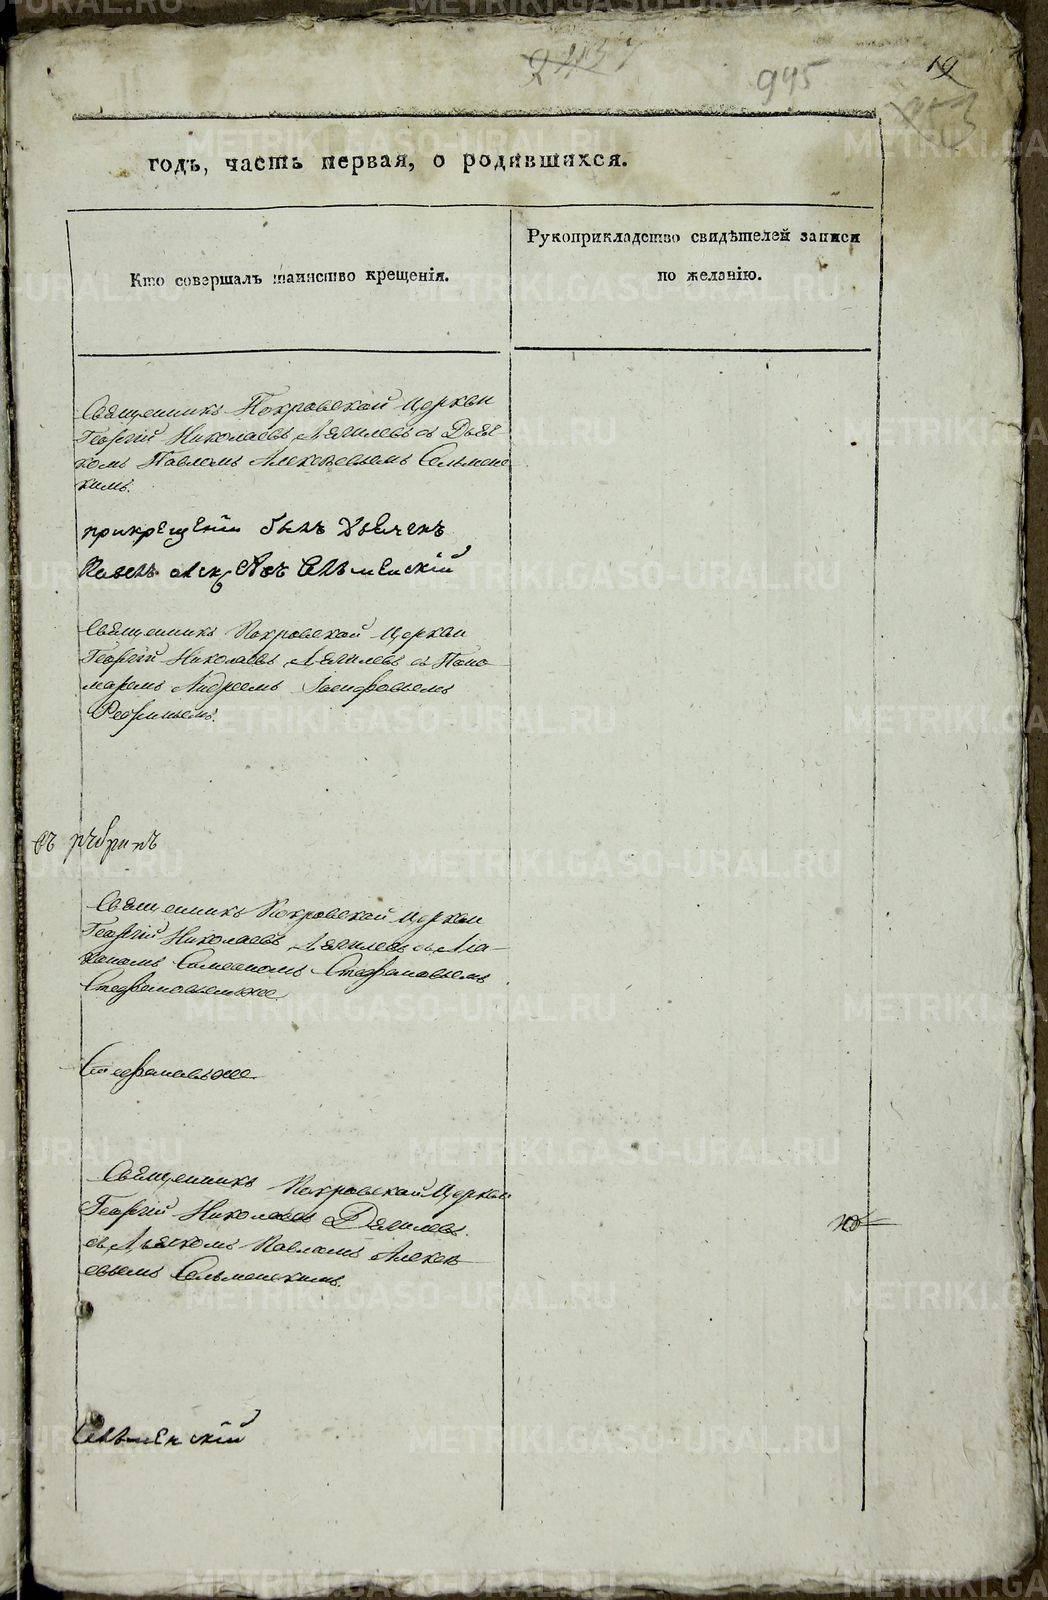 2437
945
19
253
годъ, часть первая, о родившихся.
Кто совершалъ таинство крещенія.
Рукоприкладство свидѣтелей записи
по желанію.
Священникъ Покровской Церкви
Георгій Николаевъ съ Дьяч-
комъ Павломъ Алексѣевымъ Сельменс
кимъ.
прикрещеніи былъ Дьячекъ
Павелъ Сельменскій
Священникъ Покровской Церкви
Георгій Николаевъ съ Поно
маремъ Андреемъ
Священникъ Покровской Церкви
Георгій Николаевъ съ Діа-
кономъ Симеономъ Стефановымъ
Священникъ Покровской Церкви
Георгій Николаевъ
съ Дьячкомъ Павломъ Алексѣ
евымъ Сельменскимъ.
Сельменскій
METRIKI.GASO-URAL.RU